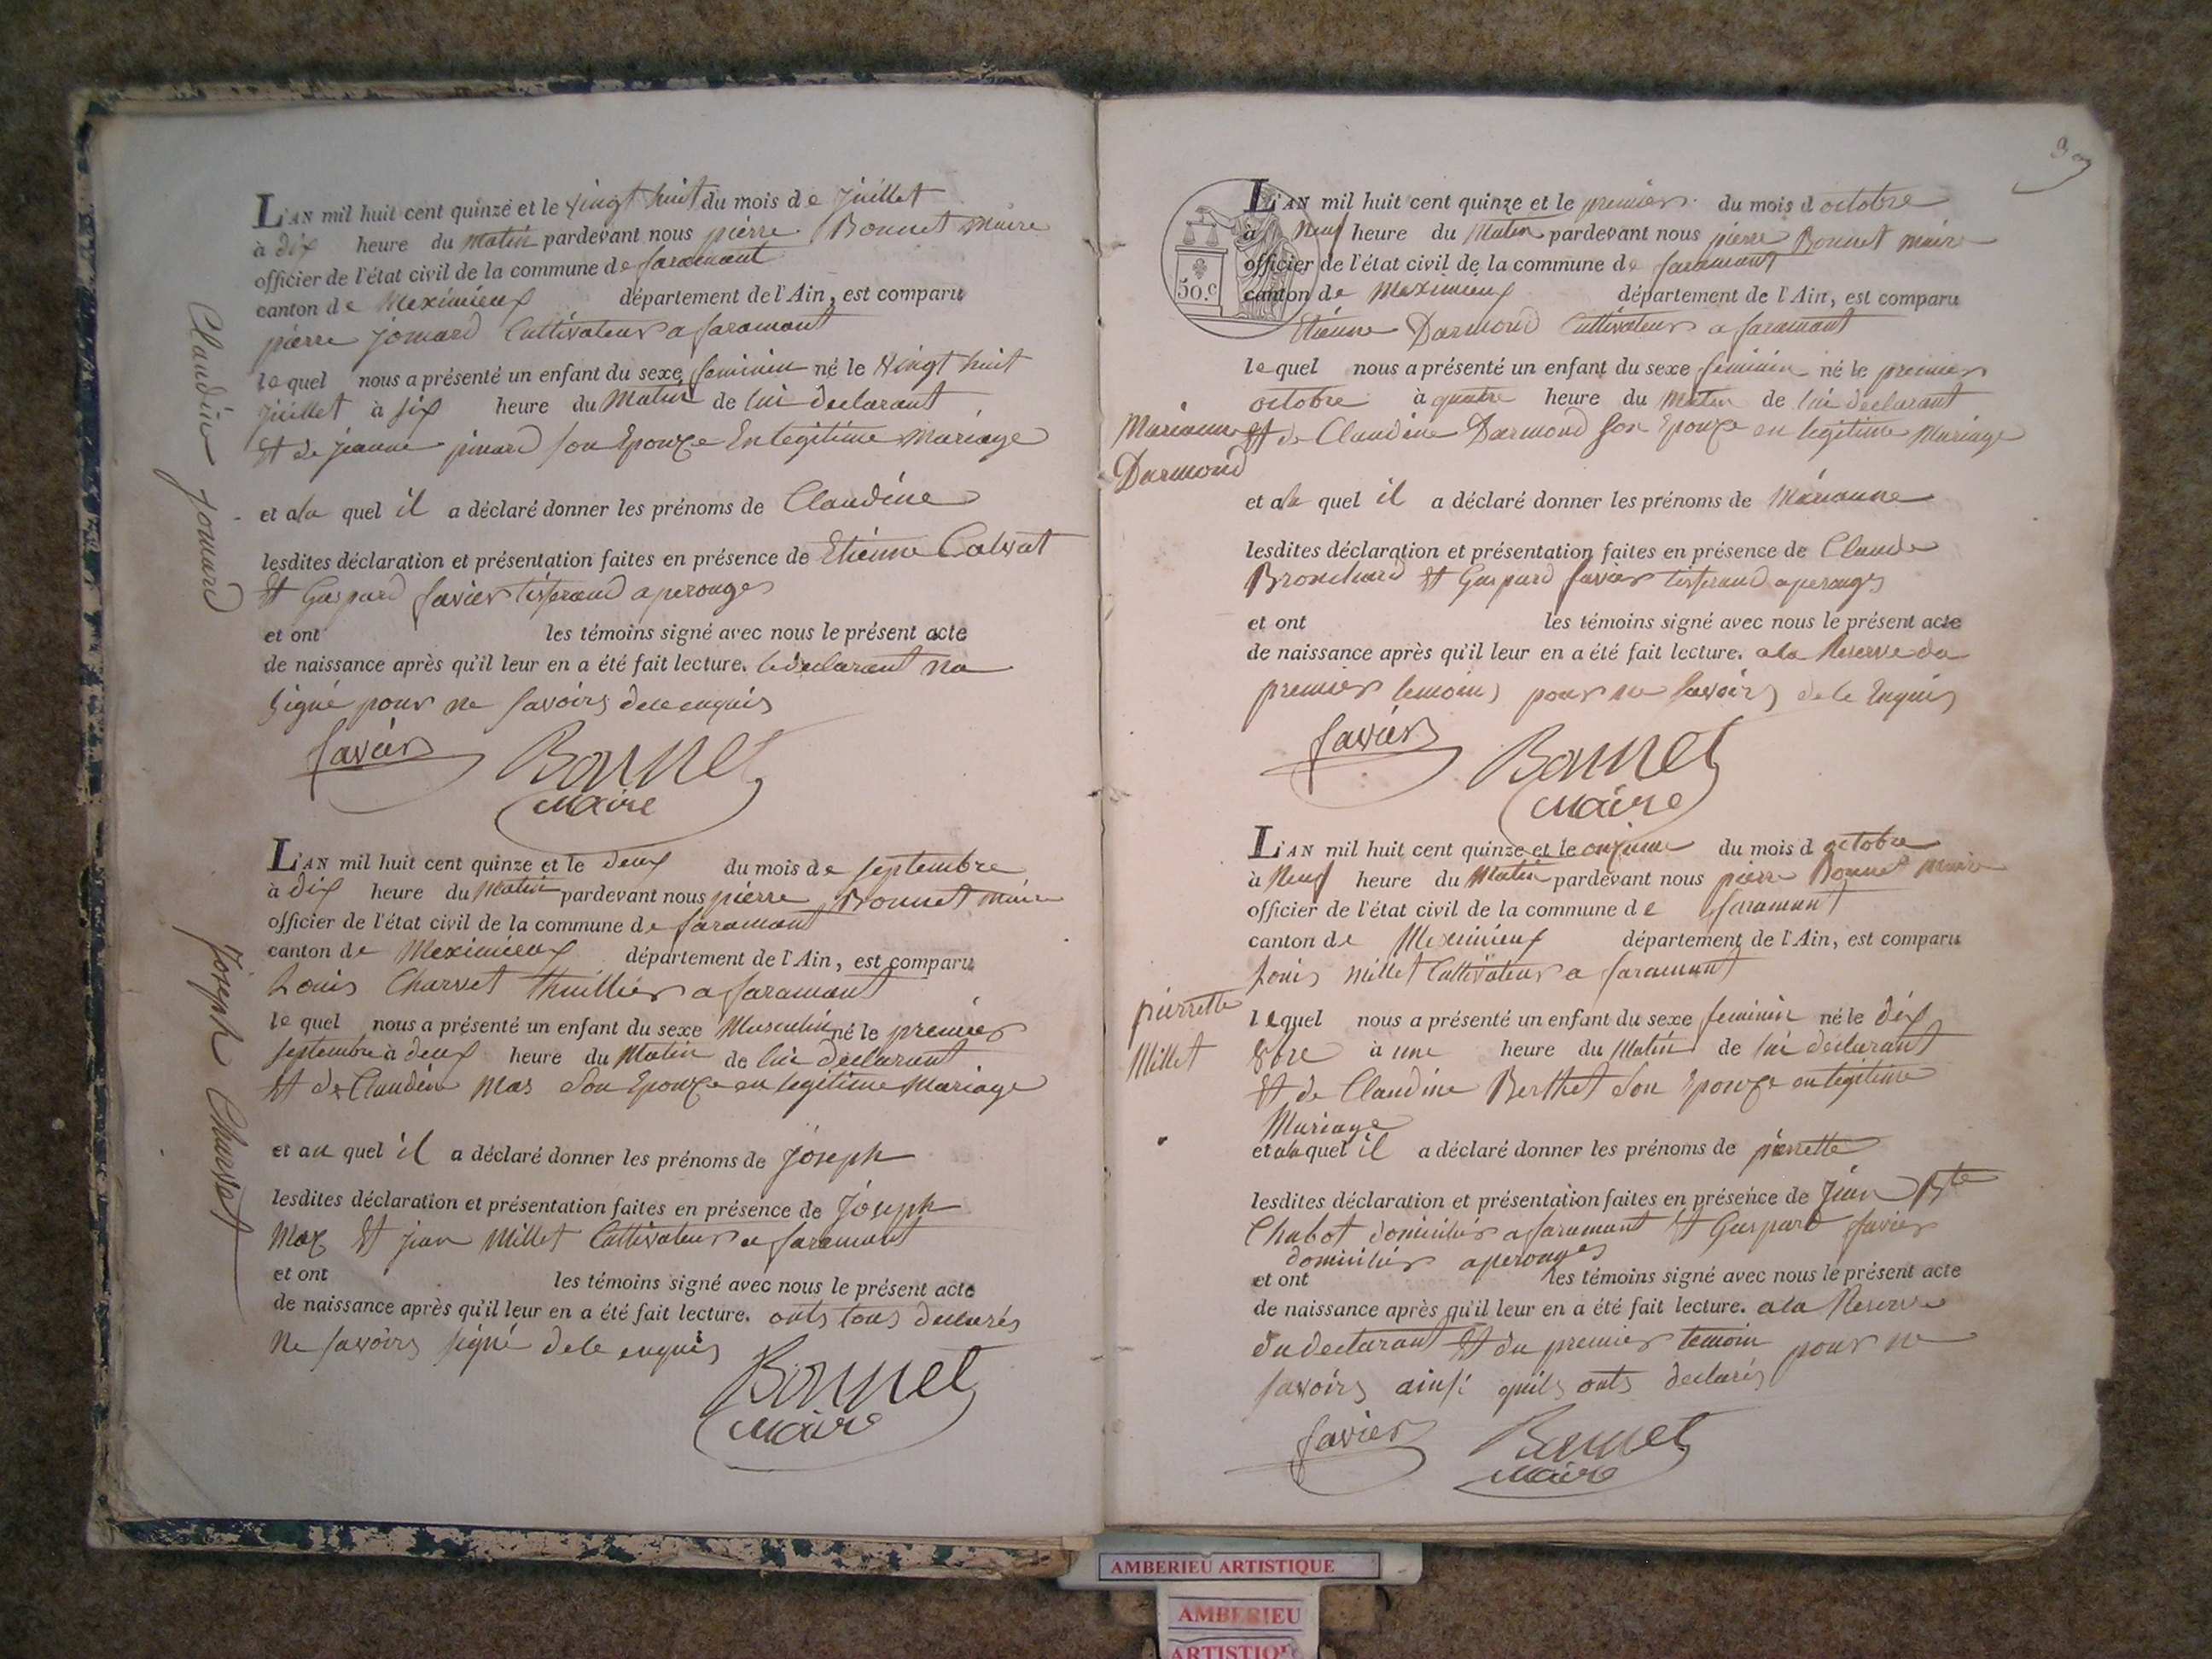 Claudine Jomard
L'AN mil huit cent quinze et le vingt huit du mois de juillet
à dix heure du matin pardevant nous pierre Bonnet maire
officier de l'état civil de la commune de faramant
canton de Meximieux département de l'Ain, est comparu
pierre jomard Cultivateur a faramant
le quel nous a présenté un enfant du sexe feminin né le vingt huit
juillet à six heure du matin de lui declarant
Et de jeanne pinard son Epouze En legitime mariage
et a la quel il a déclaré donner les prénoms de Claudine
lesdites déclaration et présentation faites en présence de Etienne Calvat
Et Gaspard favier tisserand a perouges
et ont les témoins signé avec nous le présent acte
de naissance après qu'il leur en a été fait lecture. le declarant na
signé pour ne savoirs de ce enquis
favier Bonnet
maire
Joseph Charvet
L'AN mil huit cent quinze et le deux du mois de septembre
à dix heure du matin pardevant nous pierre Bonnet maire
officier de l'état civil de la commune de faramant
canton de Meximieux département de l'Ain, est comparu
Louis Charvet thuillier a faramant
le quel nous a présenté un enfant du sexe Masculin né le premier
septembre à deux heure du Matin de lui declarant
Et de Claudine Mas son Epouze en legitime Mariage
et au quel il a déclaré donner les prénoms de joseph
lesdites déclaration et présentation faites en présence de joseph
Max Et jean Millet Cultivateur a faramant
et ont les témoins signé avec nous le présent acte
de naissance après qu'il leur en a été fait lecture. onts tous declarés
ne savoirs signé de ce enquis
Bonnet
maire
50.c
L'AN mil huit cent quinze et le premier du mois d octobre
à Neuf heure du Matin pardevant nous pierre Bonnet maire
officier de l'état civil de la commune de faramant
canton de Meximieux département de l'Ain, est comparu
Etienne Darmond Cultivateur a faramant
le quel nous a présenté un enfant du sexe feminin né le premier
octobre à quatre heure du matin de lui declarant
Marianne Et de Claudine Darmond son Epouze en legitime Mariage
Darmond
et a la quel il a déclaré donner les prénoms de Marianne
lesdites déclaration et présentation faites en présence de Claude
Bronchard Et Gaspard favier tisserand a perouges
et ont les témoins signé avec nous le présent acte
de naissance après qu'il leur en a été fait lecture. a la Reserve du
premier temoins pour ne savoirs de ce Enquis
favier Bonnet
maire
L'AN mil huit cent quinze et le onzieme du mois d octobre
à Neuf heure du Matin pardevant nous pierre Bonnet maire
officier de l'état civil de la commune de faramant
canton de Meximieux département de l'Ain, est comparu
Louis Millet Cultivateur a faramant
pierrette
Millet
le quel nous a présenté un enfant du sexe feminin né le dix
8bre à une heure du Matin de lui declarant
Et de Claudine Berthet son Epouze en legitime
Mariage
et a la quel il a déclaré donner les prénoms de pierrette
lesdites déclaration et présentation faites en présence de jean Bte
Chabot domiciliés a faramant Et Gaspard favier
domiciliés a perouges
et ont les témoins signé avec nous le présent acte
de naissance après qu'il leur en a été fait lecture. a la Reserve
du declarant Et du premier temoin pour ne
savoirs ainsi quils onts declarés
favier Bonnet
maire
AMBERIEU ARTISTIQUE
AMBERIEU
ARTISTIQ